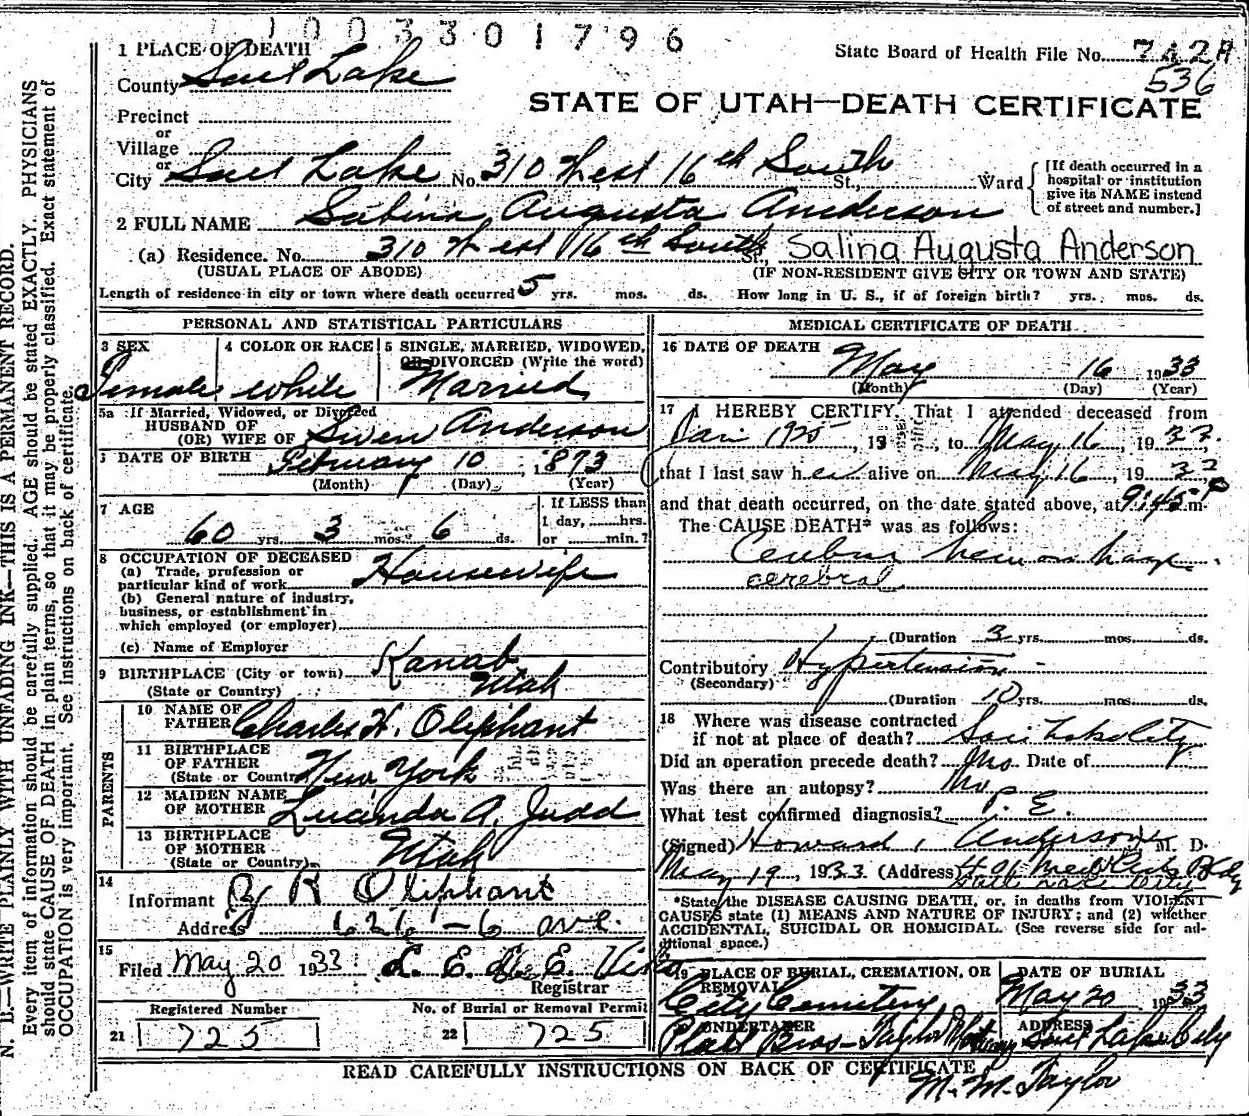 1003301796
1 PLACE OF DEATH
State Board of Health File No. 742A
County Salt Lake
536
STATE OF UTAH—DEATH CERTIFICATE
Precinct
or
Village
or
City Salt Lake No. 310 West 16th South St., Ward
[If death occurred in a hospital or institution give its NAME instead of street and number.]
2 FULL NAME Sabina Augusta Anderson
(a) Residence. No. 310 West 16th South St., Salina Augusta Anderson
(USUAL PLACE OF ABODE) (IF NON-RESIDENT GIVE CITY OR TOWN AND STATE)
Length of residence in city or town where death occurred 5 yrs. mos. ds. How long in U. S., if of foreign birth? yrs. mos. ds.
PERSONAL AND STATISTICAL PARTICULARS
3 SEX
Female
4 COLOR OR RACE
White
5 SINGLE, MARRIED, WIDOWED,
OR DIVORCED (Write the word)
Married
5a If Married, Widowed, or Divorced
HUSBAND OF
(OR) WIFE OF Swen Anderson
DATE OF BIRTH February 10, 1873
(Month) (Day) (Year)
7 AGE
60 yrs. 3 mos. 6 ds.
If LESS than
1 day, hrs.
or min.?
8 OCCUPATION OF DECEASED
(a) Trade, profession or
particular kind of work Housewife
(b) General nature of industry,
business, or establishment in
which employed (or employer)
(c) Name of Employer
9 BIRTHPLACE (City or town) Kanab
(State or Country) Utah
PARENTS
10 NAME OF
FATHER Charles H. Oliphant
11 BIRTHPLACE
OF FATHER
(State or Country) New York
12 MAIDEN NAME
OF MOTHER Lucinda A. Judd
13 BIRTHPLACE
OF MOTHER
(State or Country) Utah
14
Informant R Oliphant
Address 626 - 6 ave.
15
Filed May 20 1933
Registrar
Registered Number
21 725
No. of Burial or Removal Permit
22 725
MEDICAL CERTIFICATE OF DEATH
16 DATE OF DEATH May 16 1933
(Month) (Day) (Year)
17 I HEREBY CERTIFY, That I attended deceased from
Jan 1925, 19, to May 16, 1933.
that I last saw her alive on May 16, 1933
and that death occurred, on the date stated above, at 9:45 P m.
The CAUSE DEATH* was as follows:
Cerebral hemorrhage
cerebral
(Duration 3 yrs. mos. ds.
Contributory Hypertension
(Secondary)
(Duration 10 yrs. mos. ds.
18 Where was disease contracted
if not at place of death? Salt Lake City
Did an operation precede death? No. Date of
Was there an autopsy? No
What test confirmed diagnosis? P. E.
(Signed) Howard Anderson M. D.
May 19, 1933. (Address)
Salt Lake City
*State the DISEASE CAUSING DEATH, or, in deaths from VIOLENT
CAUSES state (1) MEANS AND NATURE OF INJURY; and (2) whether
ACCIDENTAL, SUICIDAL OR HOMICIDAL. (See reverse side for ad-
ditional space.)
19 PLACE OF BURIAL, CREMATION, OR
REMOVAL
City Cemetery
DATE OF BURIAL
May 20 1933
UNDERTAKER
ADDRESS
Salt Lake City
READ CAREFULLY INSTRUCTIONS ON BACK OF CERTIFICATE
M. M. Taylor
N. B.—WRITE PLAINLY WITH UNFADING INK—THIS IS A PERMANENT RECORD.
Every item of information should be carefully supplied. AGE should be stated EXACTLY. PHYSICIANS
should state CAUSE OF DEATH in plain terms, so that it may be properly classified. Exact statement of
OCCUPATION is very important. See instructions on back of certificate.